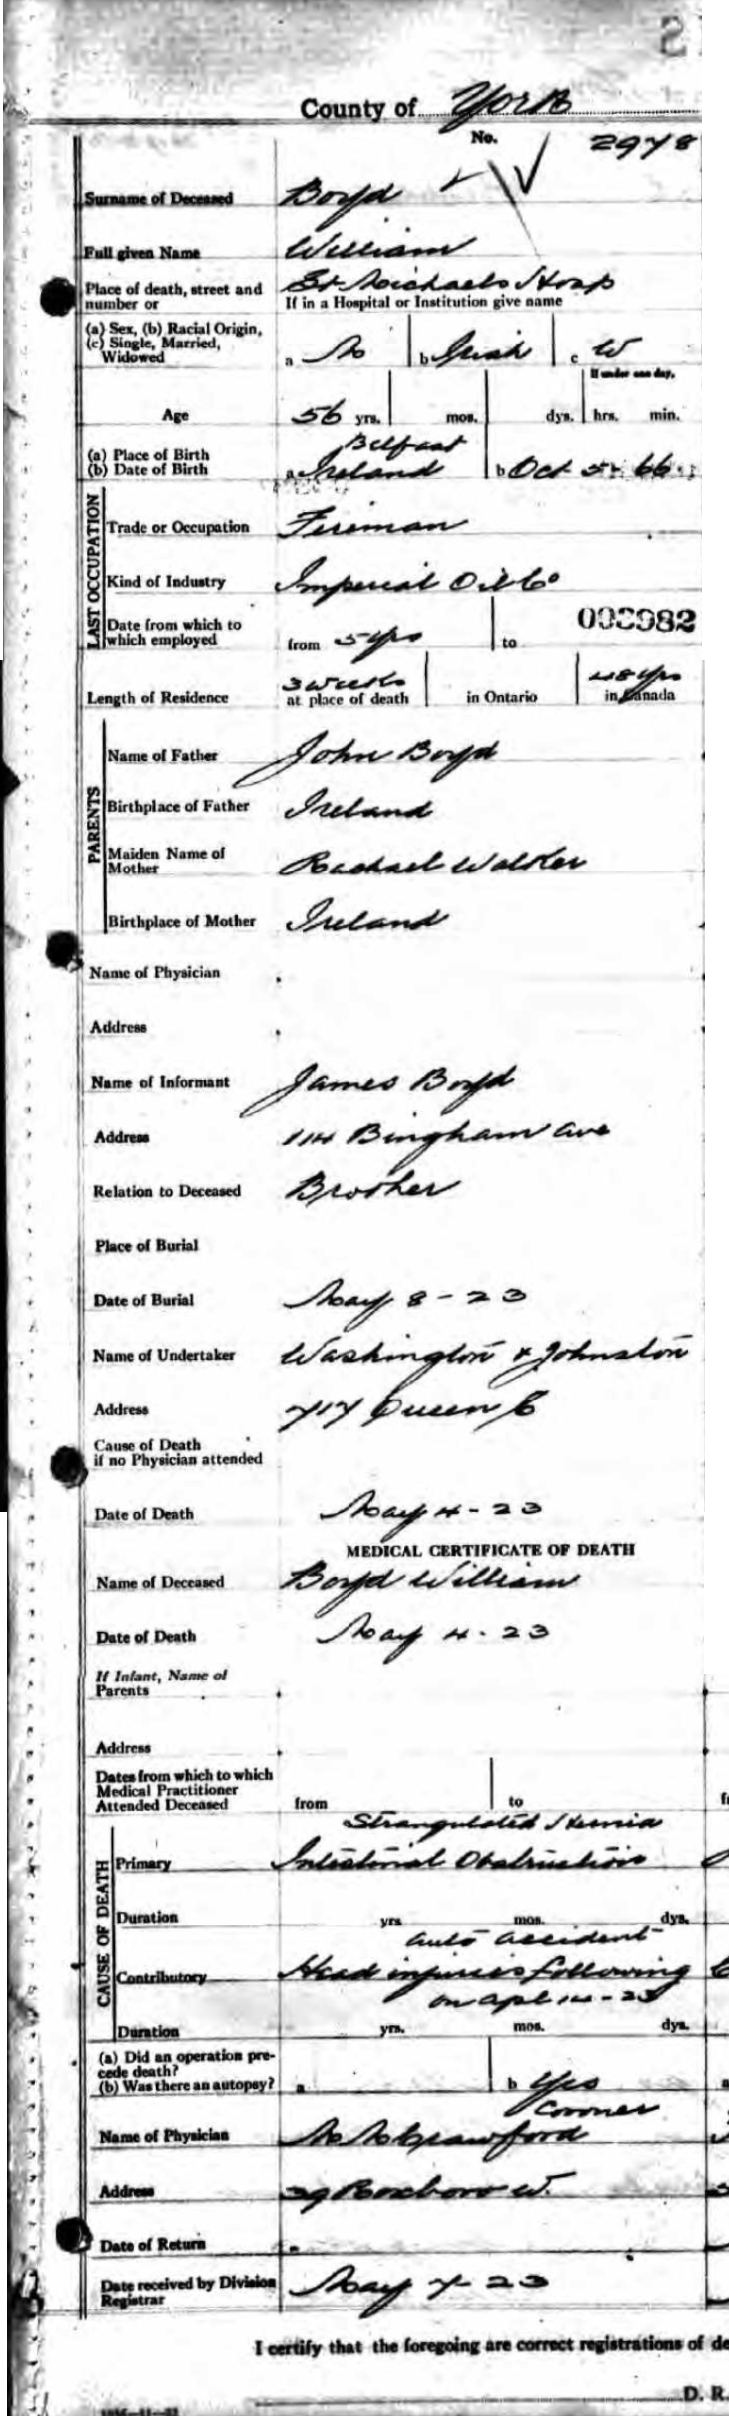 County of York
No. 2978
Surname of Deceased Boyd
Full given Name William
Place of death, street and number or St Michaels Hosp
If in a Hospital or Institution give name
(a) Sex, (b) Racial Origin,
(c) Single, Married,
Widowed a M b Irish c W
If under one day,
Age 56 yrs. mos. dys. hrs. min.
Belfast
(a) Place of Birth
(b) Date of Birth a Ireland b Oct 5 - 66
LAST OCCUPATION
Trade or Occupation Fireman
Kind of Industry Imperial Oil Co
Date from which to
which employed from 5 yrs to
Length of Residence 3 weeks at place of death in Ontario 48 yrs in Canada
PARENTS
Name of Father John Boyd
Birthplace of Father Ireland
Maiden Name of
Mother Rachael Walker
Birthplace of Mother Ireland
Name of Physician
Address
Name of Informant James Boyd
Address 114 Bingham ave
Relation to Deceased Brother
Place of Burial
Date of Burial May 8 - 23
Name of Undertaker Washington & Johnston
Address 717 Queen E
Cause of Death
if no Physician attended
Date of Death May 4 - 23
MEDICAL CERTIFICATE OF DEATH
Name of Deceased Boyd William
Date of Death May 4 - 23
If Infant, Name of
Parents
Address
Dates from which to which
Medical Practitioner
Attended Deceased from to
CAUSE OF DEATH
Strangulated Hernia
Primary Intestinal Obstruction
Duration yrs. mos. dys.
auto accident
Contributory Head injuries following
on Apl 14 - 23
Duration yrs. mos. dys.
(a) Did an operation pre-
cede death?
(b) Was there an autopsy? a b Yes
Coroner
Name of Physician M M Crawford
Address 29 Roxboro W.
Date of Return
Date received by Division
Registrar May 7 - 23
I certify that the foregoing are correct registrations of de
D. R.